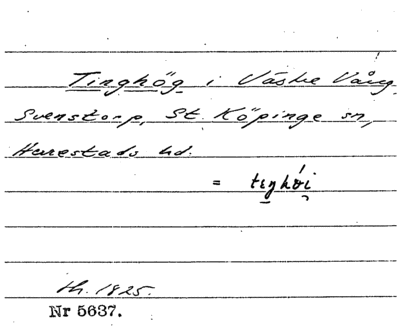 Tinghög i Västre Vång,
Svenstorp, St. Köpinge sn,
Herrestads hd.
= tɛŋhǿi̯
th. 1825.
Nr 5637.